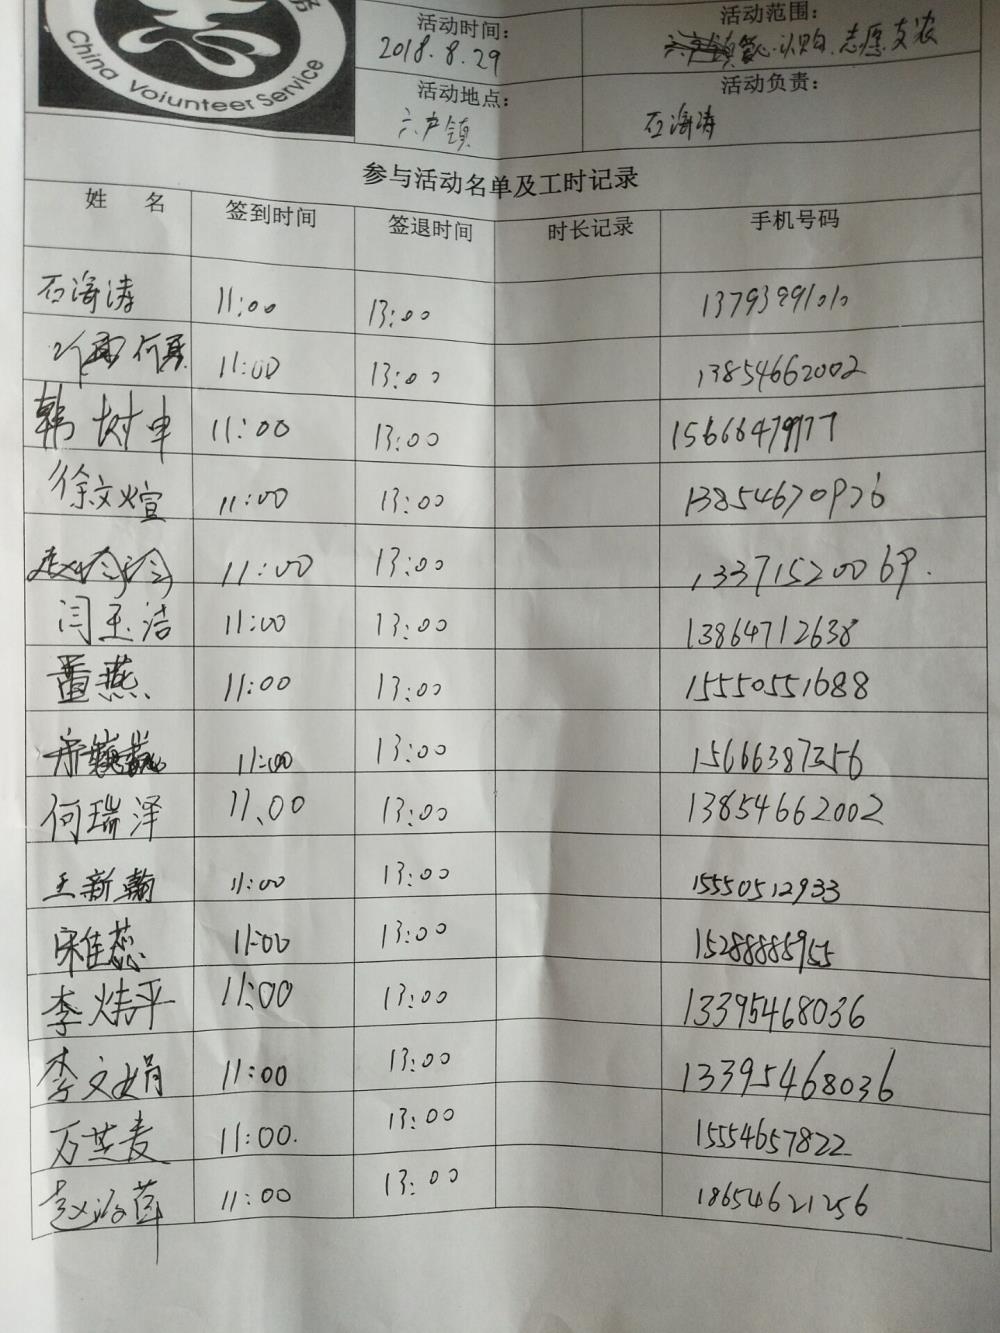 China Voiunteer Service
活动时间：
2018.8.29
活动范围：
认购.志愿支农
活动地点：
六户镇
活动负责：
石海涛
参与活动名单及工时记录
姓 名 签到时间 签退时间 时长记录 手机号码
石海涛 11:00 13:00 13793991010
11:00 13:00 13854662002
韩树申 11:00 13:00
徐文煊 11:00 13:00 13854670976
11:00 13:00 13371520069.
闫玉洁 11:00 13:00 13864712638
董燕 11:00 13:00 15550551688
11:00 13:00 15666387356
何瑞泽 11:00 13:00 13854662002
王新翰 11:00 13:00 15550512933
宋佳蕊 11:00 13:00 15288885955
李炜平 11:00 13:00 13395468036
李文娟 11:00 13:00 13395468036
万芸麦 11:00. 13:00 15554657822
赵海萍 11:00 13:00 18654621256